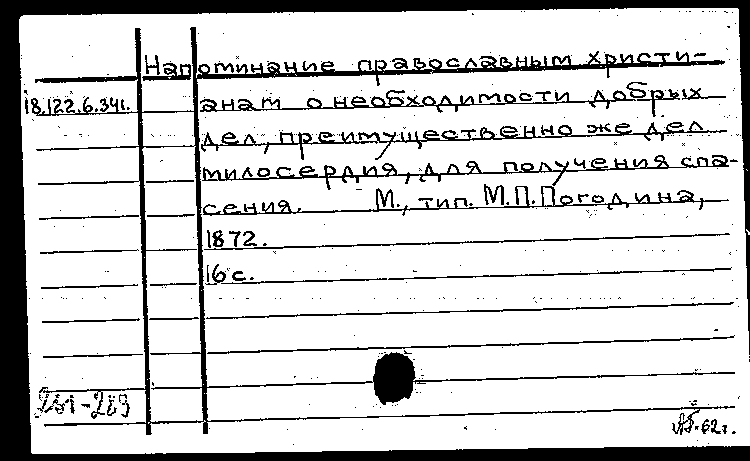 Напоминание православным христи-
18.122.6.341. анам о необходимости добрых
дел, преимущественно же дел
милосердия, для получения спа-
сения. М., тип. М.П.Погодина,
1872.
16 с.
62г.